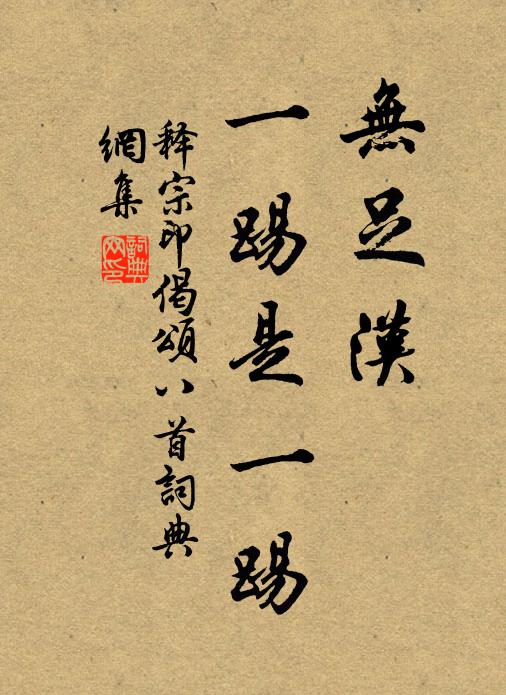 無足漢
一踢是一踢
释宗印偈頌八首詞典
網集
詞典網印